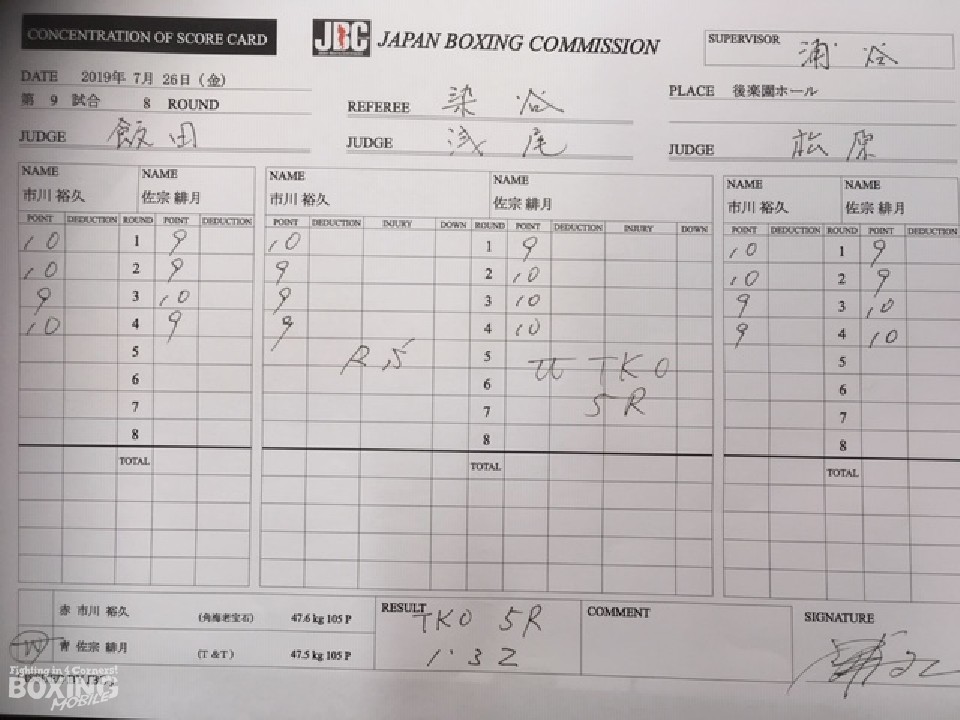 CONCENTRATION OF SCORE CARD
JBC JAPAN BOXING COMMISSION
SUPERVISOR 浦谷
DATE 2019年 7月 26日 (金)
第 9 試合 8 ROUND
REFEREE 染谷
PLACE 後楽園ホール
JUDGE 飯田
JUDGE 浅尾
JUDGE 松原
NAME 市川 裕久 NAME 佐宗 緋月
NAME 市川 裕久 NAME 佐宗 緋月
NAME 市川 裕久 NAME 佐宗 緋月
POINT DEDUCTION ROUND POINT DEDUCTION
POINT DEDUCTION INJURY DOWN ROUND POINT DEDUCTION INJURY DOWN
POINT DEDUCTION ROUND POINT DEDUCTION
10 1 9 10 1 9 10 1 9
10 2 9 9 2 10 10 2 9
9 3 10 9 3 10 9 3 10
10 4 9 9 4 10 9 4 10
5 R 5 5 TKO 5
6 6 5R 6
7 7 7
8 8 8
TOTAL TOTAL TOTAL
赤 市川 裕久 (角海老宝石) 47.6 kg 105 P
青 佐宗 緋月 (T &T) 47.5 kg 105 P
RESULT TKO 5R
1'32
COMMENT
SIGNATURE
Fighting in 4 Corners!
BOXING
MOBILE